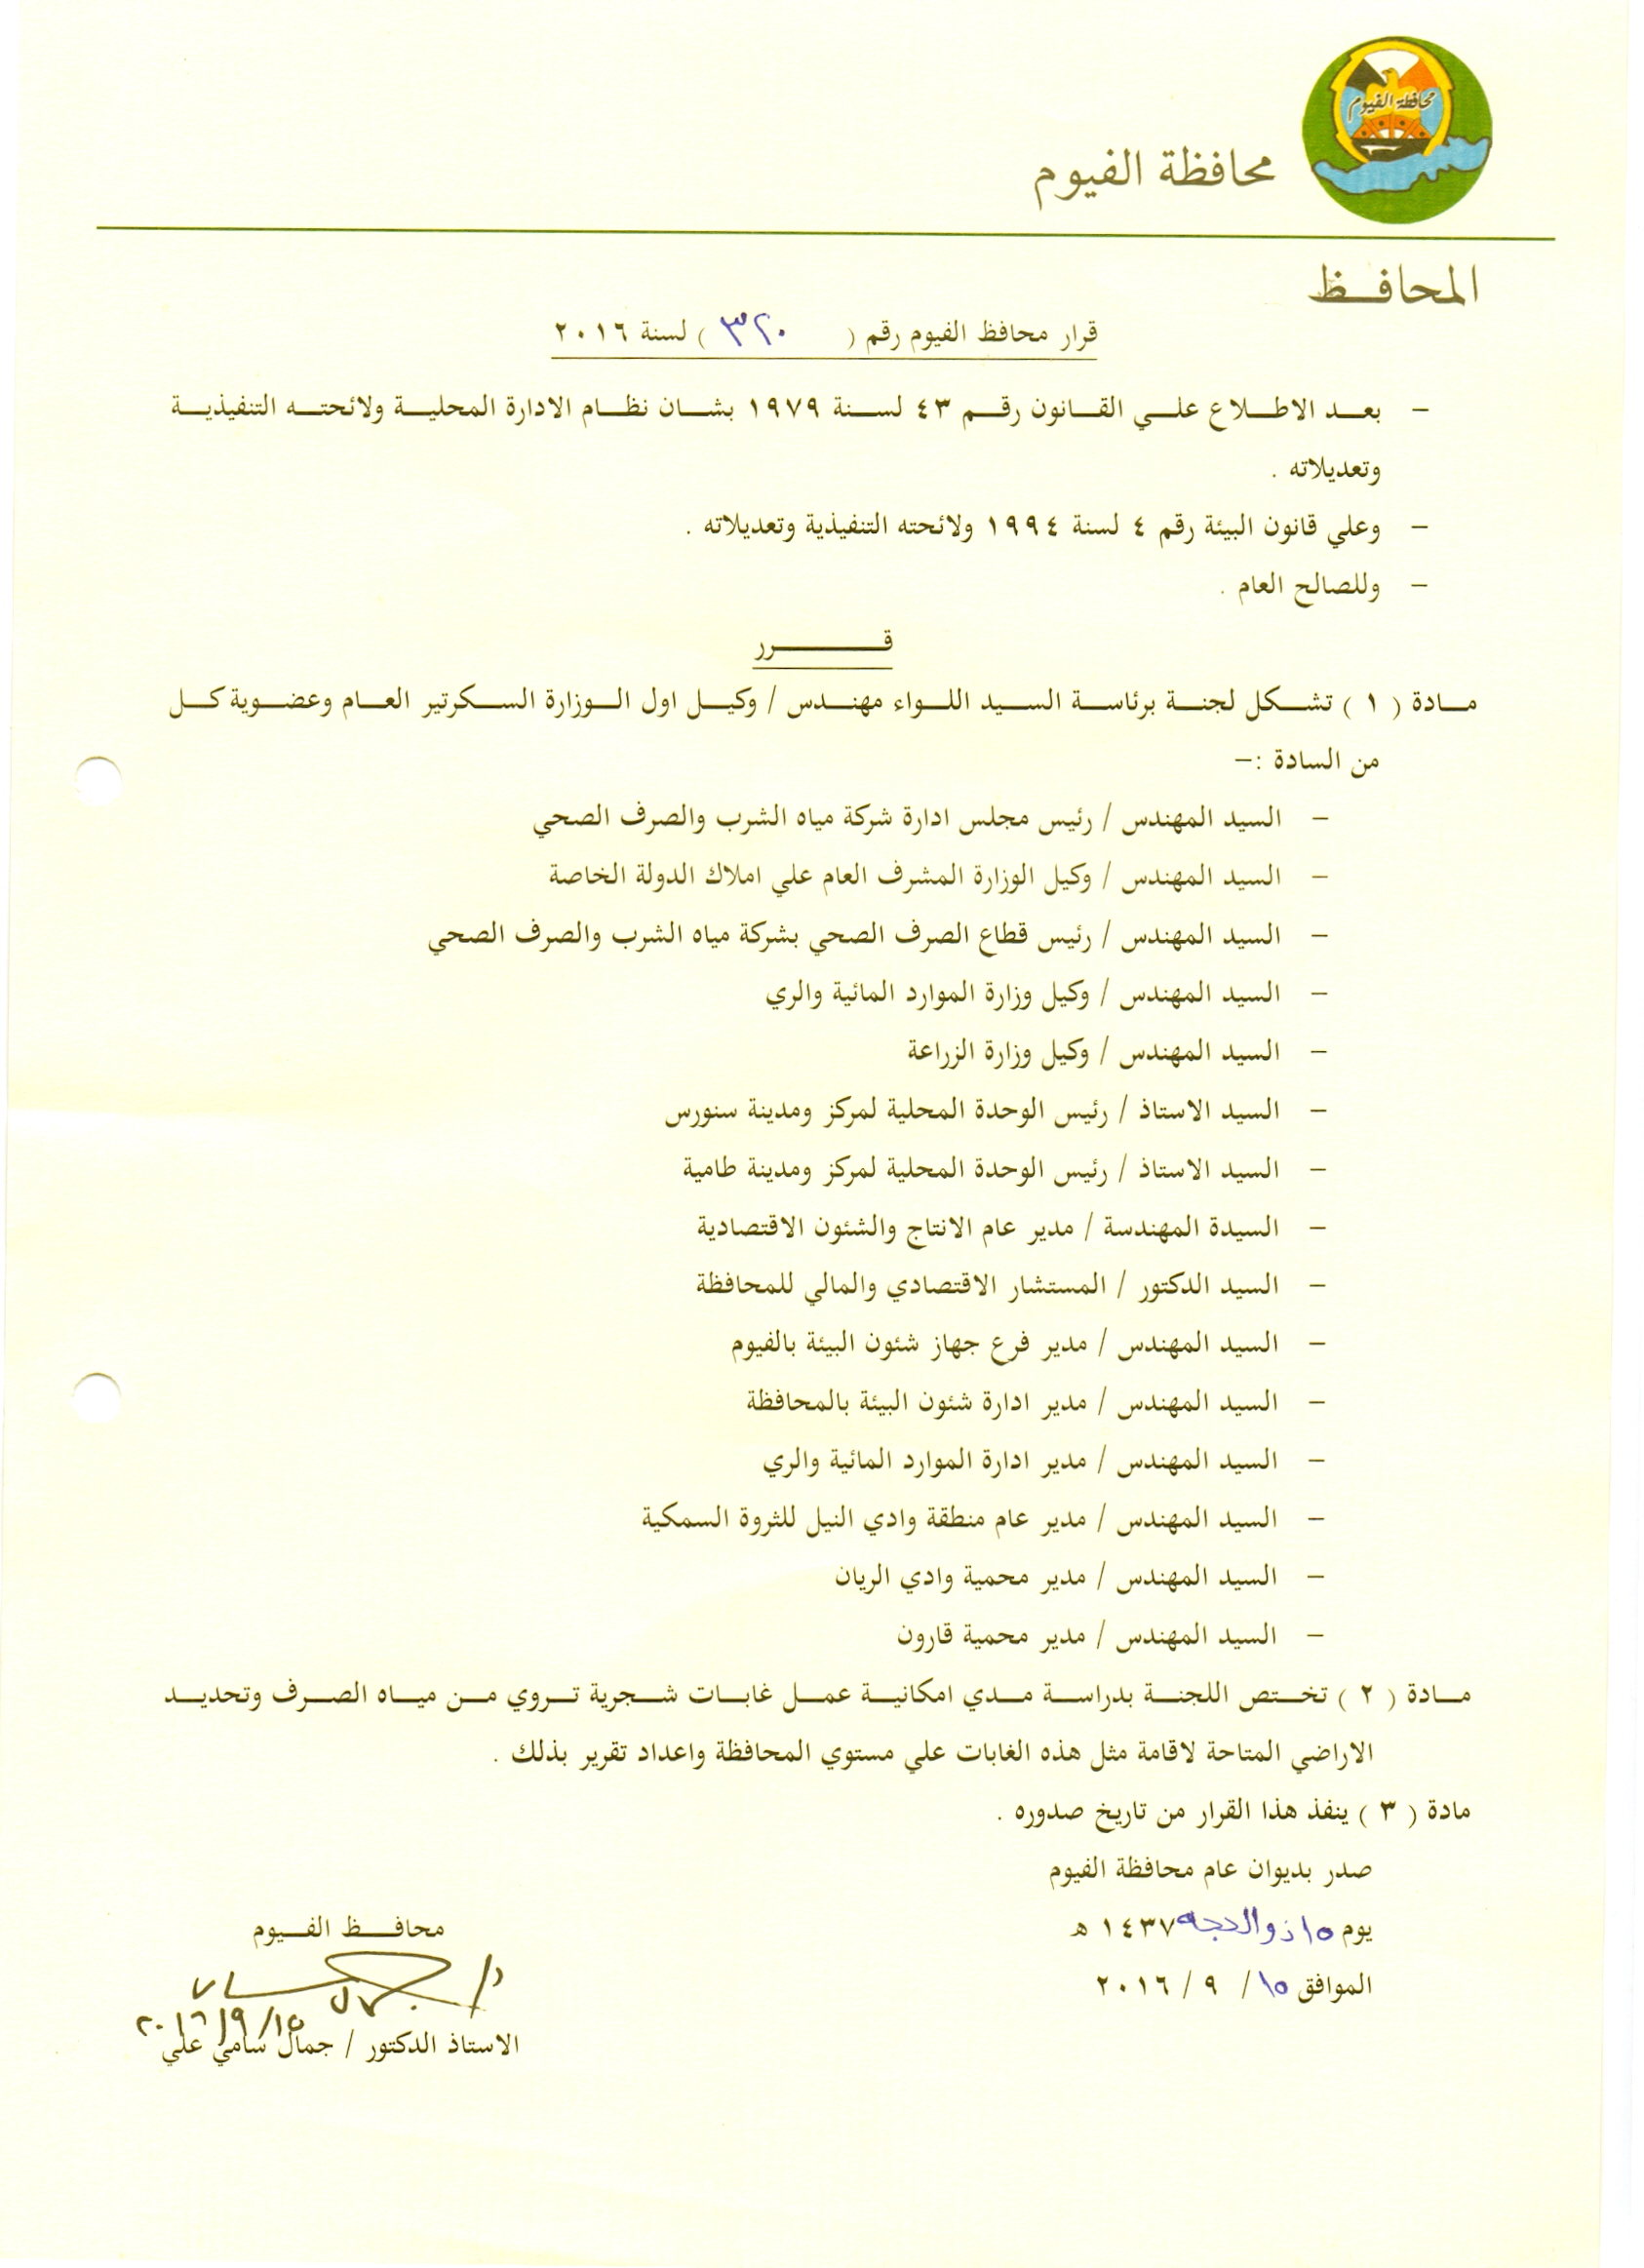 محافظة الفيوم
محافظة الفيوم
المحافظ
قرار محافظ الفيوم رقم ( ٣٢٠ ) لسنة ٢٠١٦
– بعد الاطلاع علي القانون رقم ٤٣ لسنة ١٩٧٩ بشان نظام الادارة المحلية ولائحته التنفيذية
وتعديلاته .
– وعلي قانون البيئة رقم ٤ لسنة ١٩٩٤ ولائحته التنفيذية وتعديلاته .
– وللصالح العام .
قرر
مادة ( ١ ) تشكل لجنة برئاسة السيد اللواء مهندس / وكيل اول الوزارة السكرتير العام وعضوية كل
من السادة :–
– السيد المهندس / رئيس مجلس ادارة شركة مياه الشرب والصرف الصحي
– السيد المهندس / وكيل الوزارة المشرف العام علي املاك الدولة الخاصة
– السيد المهندس / رئيس قطاع الصرف الصحي بشركة مياه الشرب والصرف الصحي
– السيد المهندس / وكيل وزارة الموارد المائية والري
– السيد المهندس / وكيل وزارة الزراعة
– السيد الاستاذ / رئيس الوحدة المحلية لمركز ومدينة سنورس
– السيد الاستاذ / رئيس الوحدة المحلية لمركز ومدينة طامية
– السيدة المهندسة / مدير عام الانتاج والشئون الاقتصادية
– السيد الدكتور / المستشار الاقتصادي والمالي للمحافظة
– السيد المهندس / مدير فرع جهاز شئون البيئة بالفيوم
– السيد المهندس / مدير ادارة شئون البيئة بالمحافظة
– السيد المهندس / مدير ادارة الموارد المائية والري
– السيد المهندس / مدير عام منطقة وادي النيل للثروة السمكية
– السيد المهندس / مدير محمية وادي الريان
– السيد المهندس / مدير محمية قارون
مادة ( ٢ ) تختص اللجنة بدراسة مدي امكانية عمل غابات شجرية تروي من مياه الصرف وتحديد
الاراضي المتاحة لاقامة مثل هذه الغابات علي مستوي المحافظة واعداد تقرير بذلك .
مادة ( ٣ ) ينفذ هذا القرار من تاريخ صدوره .
صدر بديوان عام محافظة الفيوم
يوم ١٥ ذو الحجه ١٤٣٧ هـ
الموافق ١٥ / ٩ / ٢٠١٦
محافظ الفيوم
٢٠١٦/٩/١٥
الاستاذ الدكتور / جمال سامي علي